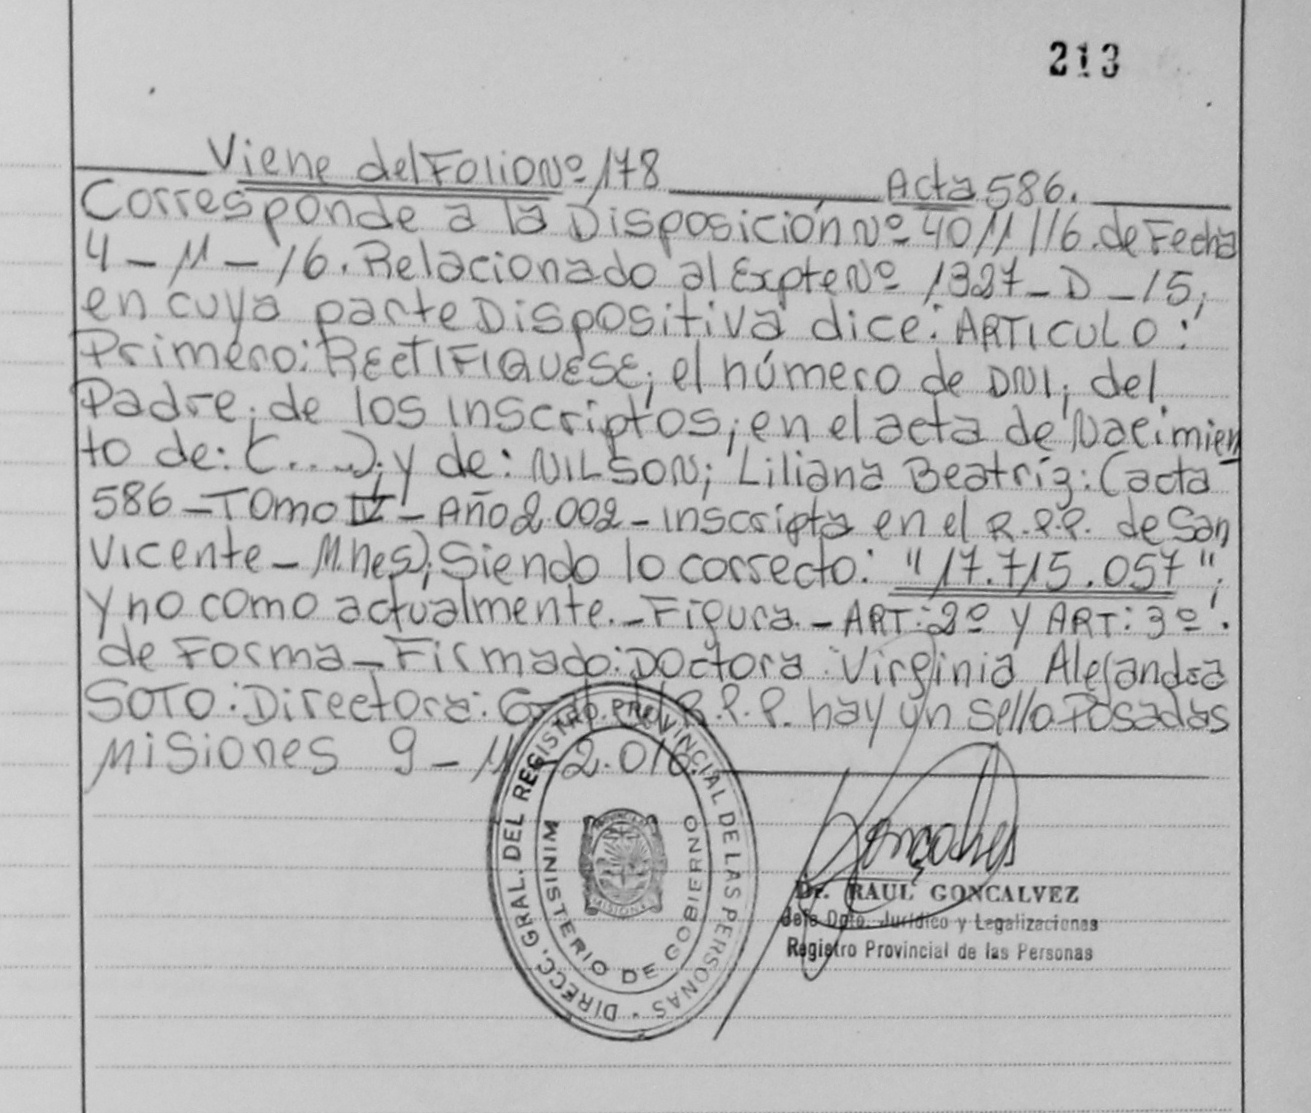 213
Viene del Folio Nº 178 Acta 586.
Corresponde a la Disposición Nº 4011/16. de Fecha
4 - 11 - 16. Relacionado al Expte Nº 1327 - D - 15,
en cuya parte Dispositiva dice: ARTICULO:
Primero: RECTIFIQUESE, el número de DNI, del
Padre, de los inscriptos, en el acta de Nacimien
to de: (....); y de: NILSON; Liliana Beatríz: (acta
586 - Tomo IV - Año 2.002 - inscripta en el R.P.P. de San
Vicente - M.nes); Siendo lo correcto: "17.715.057",
y no como actualmente. - Figura. - ART: 2º y ART: 3º.
de Forma - Firmado: Doctora: Virginia Alejandra
SOTO: Directora: Gral. del R.P.P. hay un sello Posadas
Misiones 9 - 11 - 2.016.
DIRECC. GRAL. DEL REGISTRO PROVINCIAL DE LAS PERSONAS
MINISTERIO DE GOBIERNO
MISIONES
Dr. RAUL GONCALVEZ
Jefe Dpto. Jurídico y Legalizaciones
Registro Provincial de las Personas